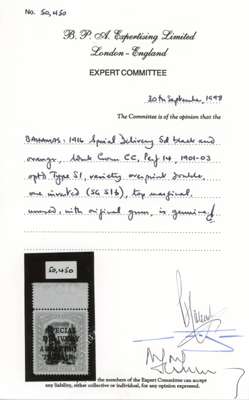 No. 50,450
B. P. A. Expertising Limited
London - England
EXPERT COMMITTEE
30th September, 1998
The Committee is of the opinion that the
BAHAMAS: 1916 Special Delivery 5d black and
orange, Wmk Crown CC, Perf 14, 1901-03
optd Type S1, variety overprint double,
one inverted (SG S1b), top marginal,
unused, with original gum, is genuine.
50,450
SPECIAL
DELIVERY
the members of the Expert Committee can accept
any liability, either collective or individual, for any opinion expressed.